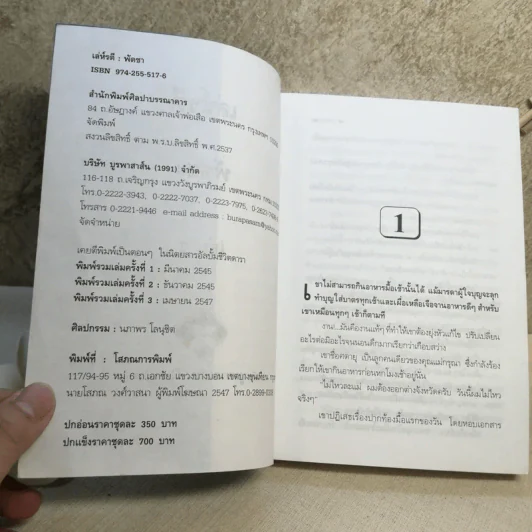 เล่ห์รตี : พัดชา
ISBN 974-255-517-6
สำนักพิมพ์ศิลปาบรรณาคาร
84 ถ.อัษฎางค์ แขวงศาลเจ้าพ่อเสือ เขตพระนคร กรุงเทพฯ
จัดพิมพ์
สงวนลิขสิทธิ์ ตาม พ.ร.บ.ลิขสิทธิ์ พ.ศ.2537
บริษัท บูรพาสาส์น (1991) จำกัด
116-118 ถ.เจริญกรุง แขวงวังบูรพาภิรมย์ เขตพระนคร
โทร.0-2222-3943, 0-2222-7037, 0-2223-7975,
โทรสาร 0-2221-9446 e-mail address :
จัดจำหน่าย
เคยตีพิมพ์เป็นตอนๆ ในนิตยสารอัลบั้มชีวิตดารา
พิมพ์รวมเล่มครั้งที่ 1 : มีนาคม 2545
พิมพ์รวมเล่มครั้งที่ 2 : ธันวาคม 2545
พิมพ์รวมเล่มครั้งที่ 3 : เมษายน 2547
ศิลปกรรม : นภาพร โลนุชิต
พิมพ์ที่ : โสภณการพิมพ์
117/94-95 หมู่ 6 ถ.เอกชัย แขวงบางบอน เขตบางขุนเทียน
นายโสภณ วงศ์วาสนา ผู้พิมพ์โฆษณา 2547
ปกอ่อนราคาชุดละ 350 บาท
ปกแข็งราคาชุดละ 700 บาท
1
เขาไม่สามารถกินอาหารมื้อเช้านั้นได้ แม้มารดาผู้ใจบุญจะลุก
ทำบุญใส่บาตรทุกเช้าและมื้อเหลือเจือจานอาหารดีๆ สำหรับ
เขาเหมือนทุกๆ เช้าก็ตามที
งาน...มันคืองานแท้ๆ ที่ทำให้เขาต้องยุ่งหัวแก้ไข ปรับเปลี่ยน
อะไรต่อมิอะไรจนนอนดึกมากเรียกว่าเกือบสว่าง
เขาชื่อศตายุ เป็นลูกคนเดียวของคุณแม่กรุณา ซึ่งกำลังร้อง
เรียกให้เขากินอาหารก่อนหกโมงเช้าอยู่นั้น
“ไม่ไหวละแม่ ผมต้องออกต่างจังหวัดครับ วันนี้ผมไม่ไหว
จริงๆ”
เขาปฏิเสธเรื่องปากท้องมื้อแรกของวัน โดยหอบเอกสาร